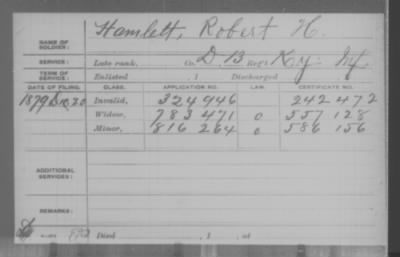 NAME OF SOLDIER: Hamlett, Robert H.
SERVICE: Late rank, Co. D. 13 Reg't Ky. Inf.
TERM OF SERVICE: Enlisted , 1 Discharged , 1
DATE OF FILING. CLASS. APPLICATION NO. LAW. CERTIFICATE NO.
1879 Dec. 20 Invalid, 324 946 242 472
Widow, 783 471 0 557 128
Minor, 816 264 0 586 156
ADDITIONAL SERVICES:
REMARKS:
Died , 1 , at